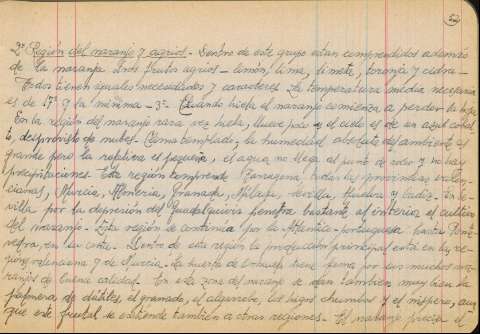 52
2º Región del naranjo y agrios.- Dentro de este grupo estan comprendidos además
de la naranja otros frutos agrios - limón, lima, limeta, toronja y cidra -
Todos tienen iguales necesidades y caracteres. La temperatura média necesaria
es de 17º y la mínima - 3º. Cuando hiela el naranjo comienza a perder la hoja
En la región del naranjo rara vez hiela, llueve poco y el cielo es de un azul cobal
to, desprovisto de nubes. Clima templado; la humedad absoluta del ambiente es
grande pero la relativa es pequeña, el agua no llega al punto de rocío y no hay
precipitaciones. Esta región comprende todas las provincias valen
cianas, Murcia, Almería, Granada, Málaga, Sevilla, Huelva y Cadiz. En Se-
villa por la depresión del Guadalquivir penetra bastante al interior el cultivo
del naranjo. Esta región se continua por la Atlantico-portuguesa hasta Ponte
vedra, en su costa. Dentro de esta región la producción principal está en la re-
gión valenciana y de Murcia. La huerta de Orihuela tiene fama por sus muchos na-
ranjos de buena calidad. En esta zona del naranjo se dan tambien muy bien la
palmera de datiles, el granado, el algarrobo, los higos chumbos y el níspero, aun
que este frutal se extiende tambien a otras regiones. El naranjo precisa el